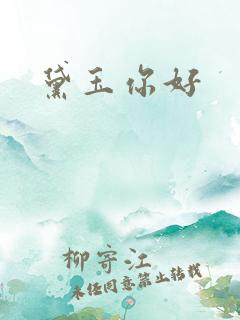 黛玉你好
柳寄江
未经同意禁止转载